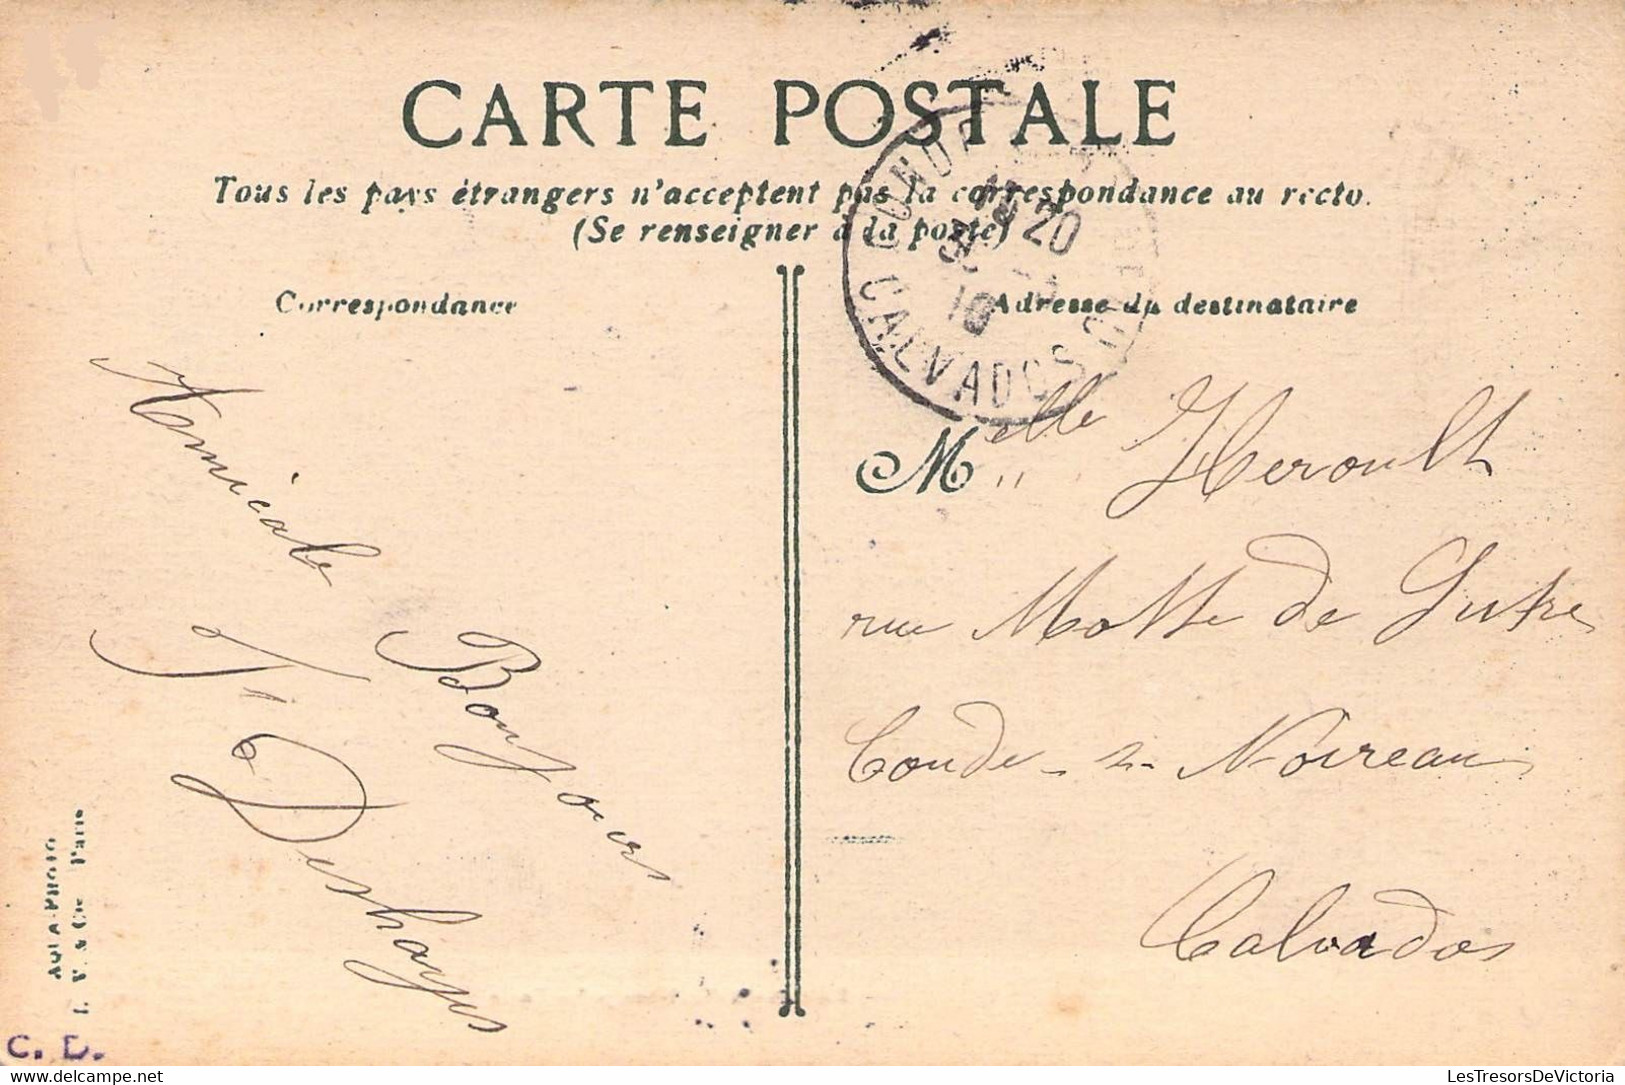 CARTE POSTALE
Tous les pays étrangers n'acceptent pas la correspondance au recto.
(Se renseigner à la poste)
Correspondance
Adresse du destinataire
CALVADOS
20
10
Amicale
Bonjour
Deshayes
Melle Heroult
rue Motte de
Conde - s - Noireau
Calvados
AQUA-PHOTO
L. V. & Cie Paris
C. D.
LesTresorsDeVictoria